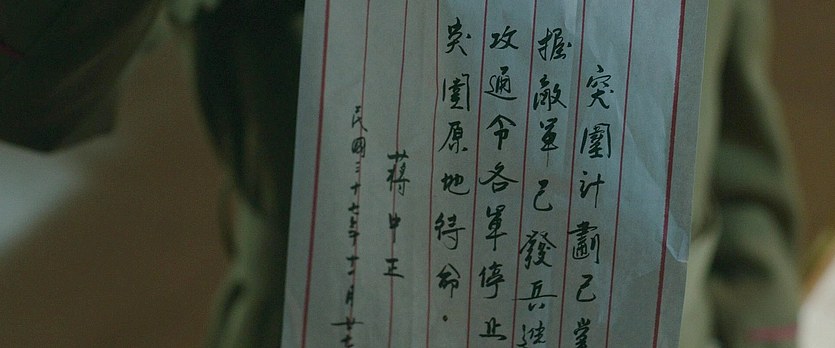 突圍計劃已掌
握敵軍已發兵進
攻通令各軍停止
突圍原地待命.
蔣中正
民國三十七年十二月廿七